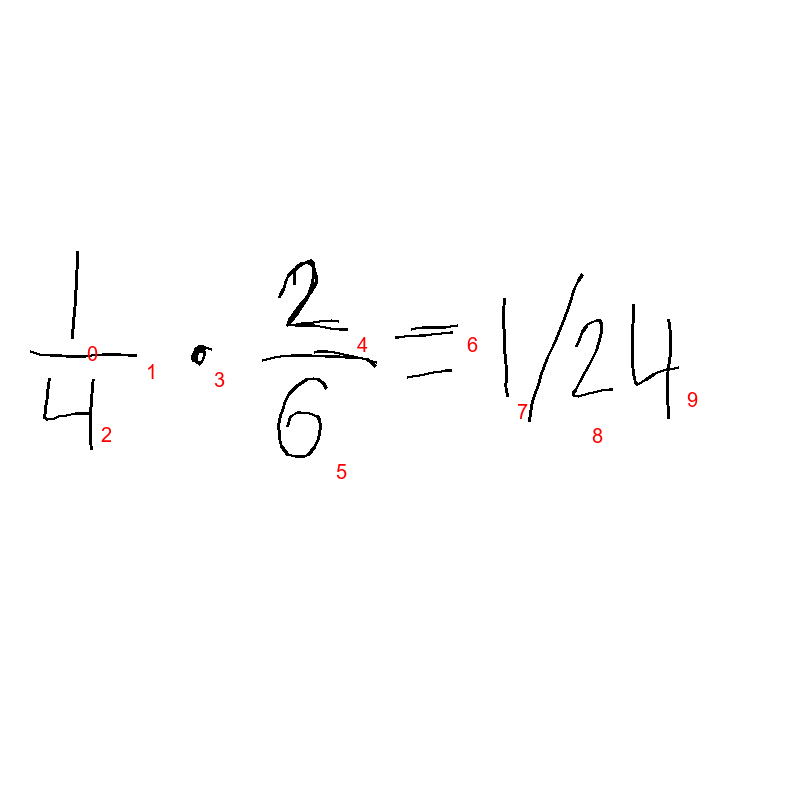 1/4 · 2/6 = 1/24
0 1 2 3 4 5 6 7 8 9